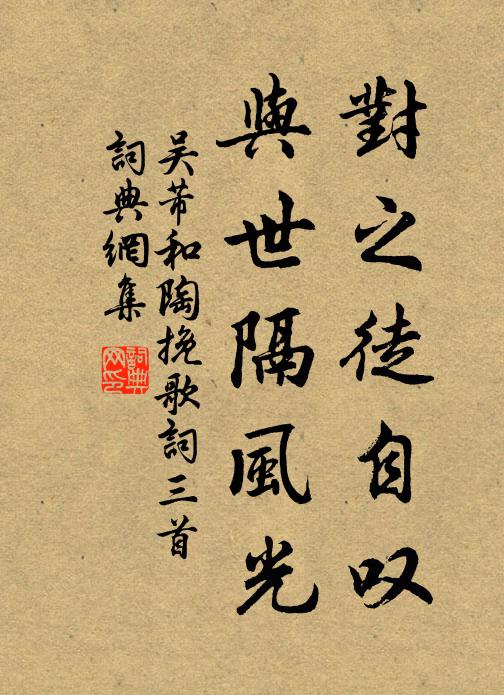 對之徒自叹
與世隔風光
吴芾和陶挽歌詞三首
詞典網集
詞典網印